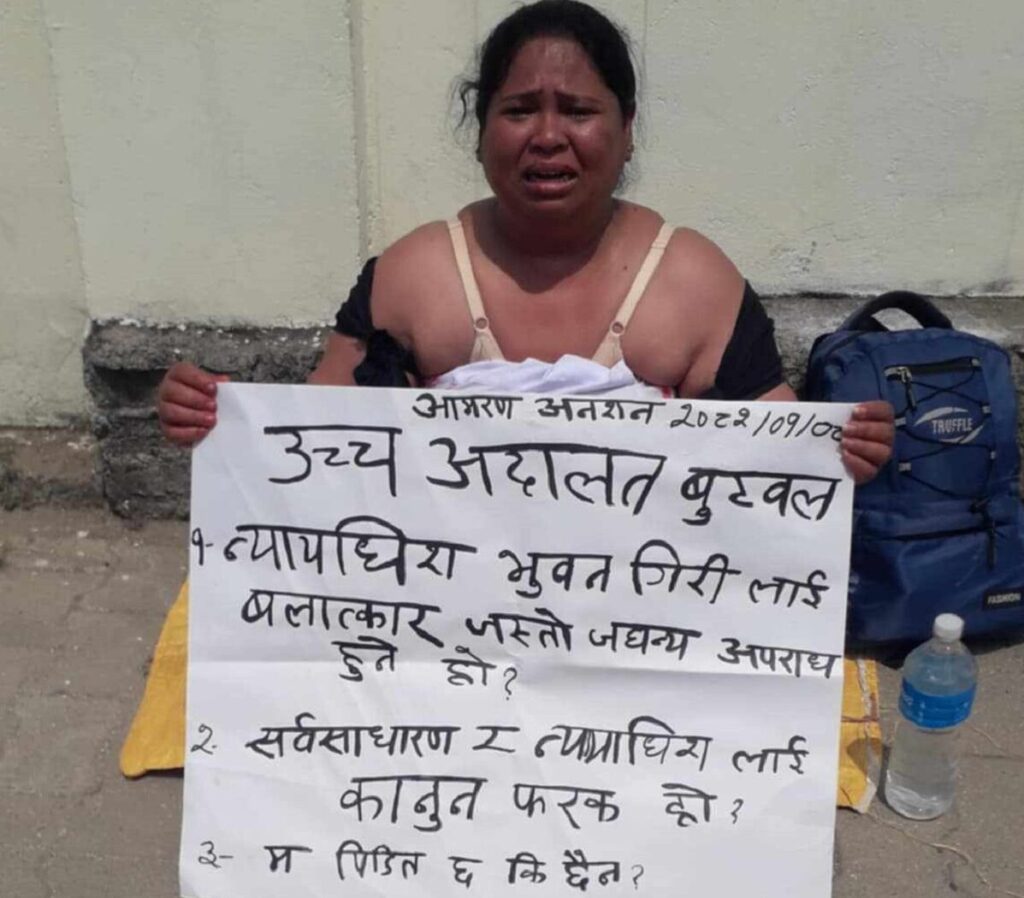 आमरण अनशन २०८१/०१/०८
उच्च अदालत बुटवल
१- न्यायधिश भुवन गिरी लाई
बलात्कार जस्तो जघन्य अपराध
हुने हो?
२- सर्वसाधारण र न्यायाधिश लाई
कानुन फरक हो?
३- म पिडित छ कि छैन?
TRUFFLE
FASHION